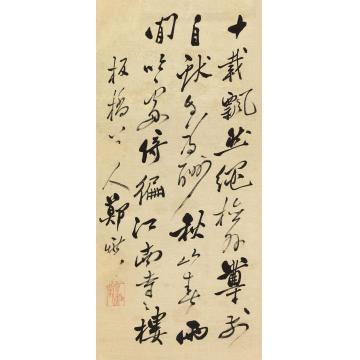 十載飄然繩檢外樽前
自獻自為酬秋山春雨
閒吟處倚徧江南寺〻樓
板橋道人鄭燮